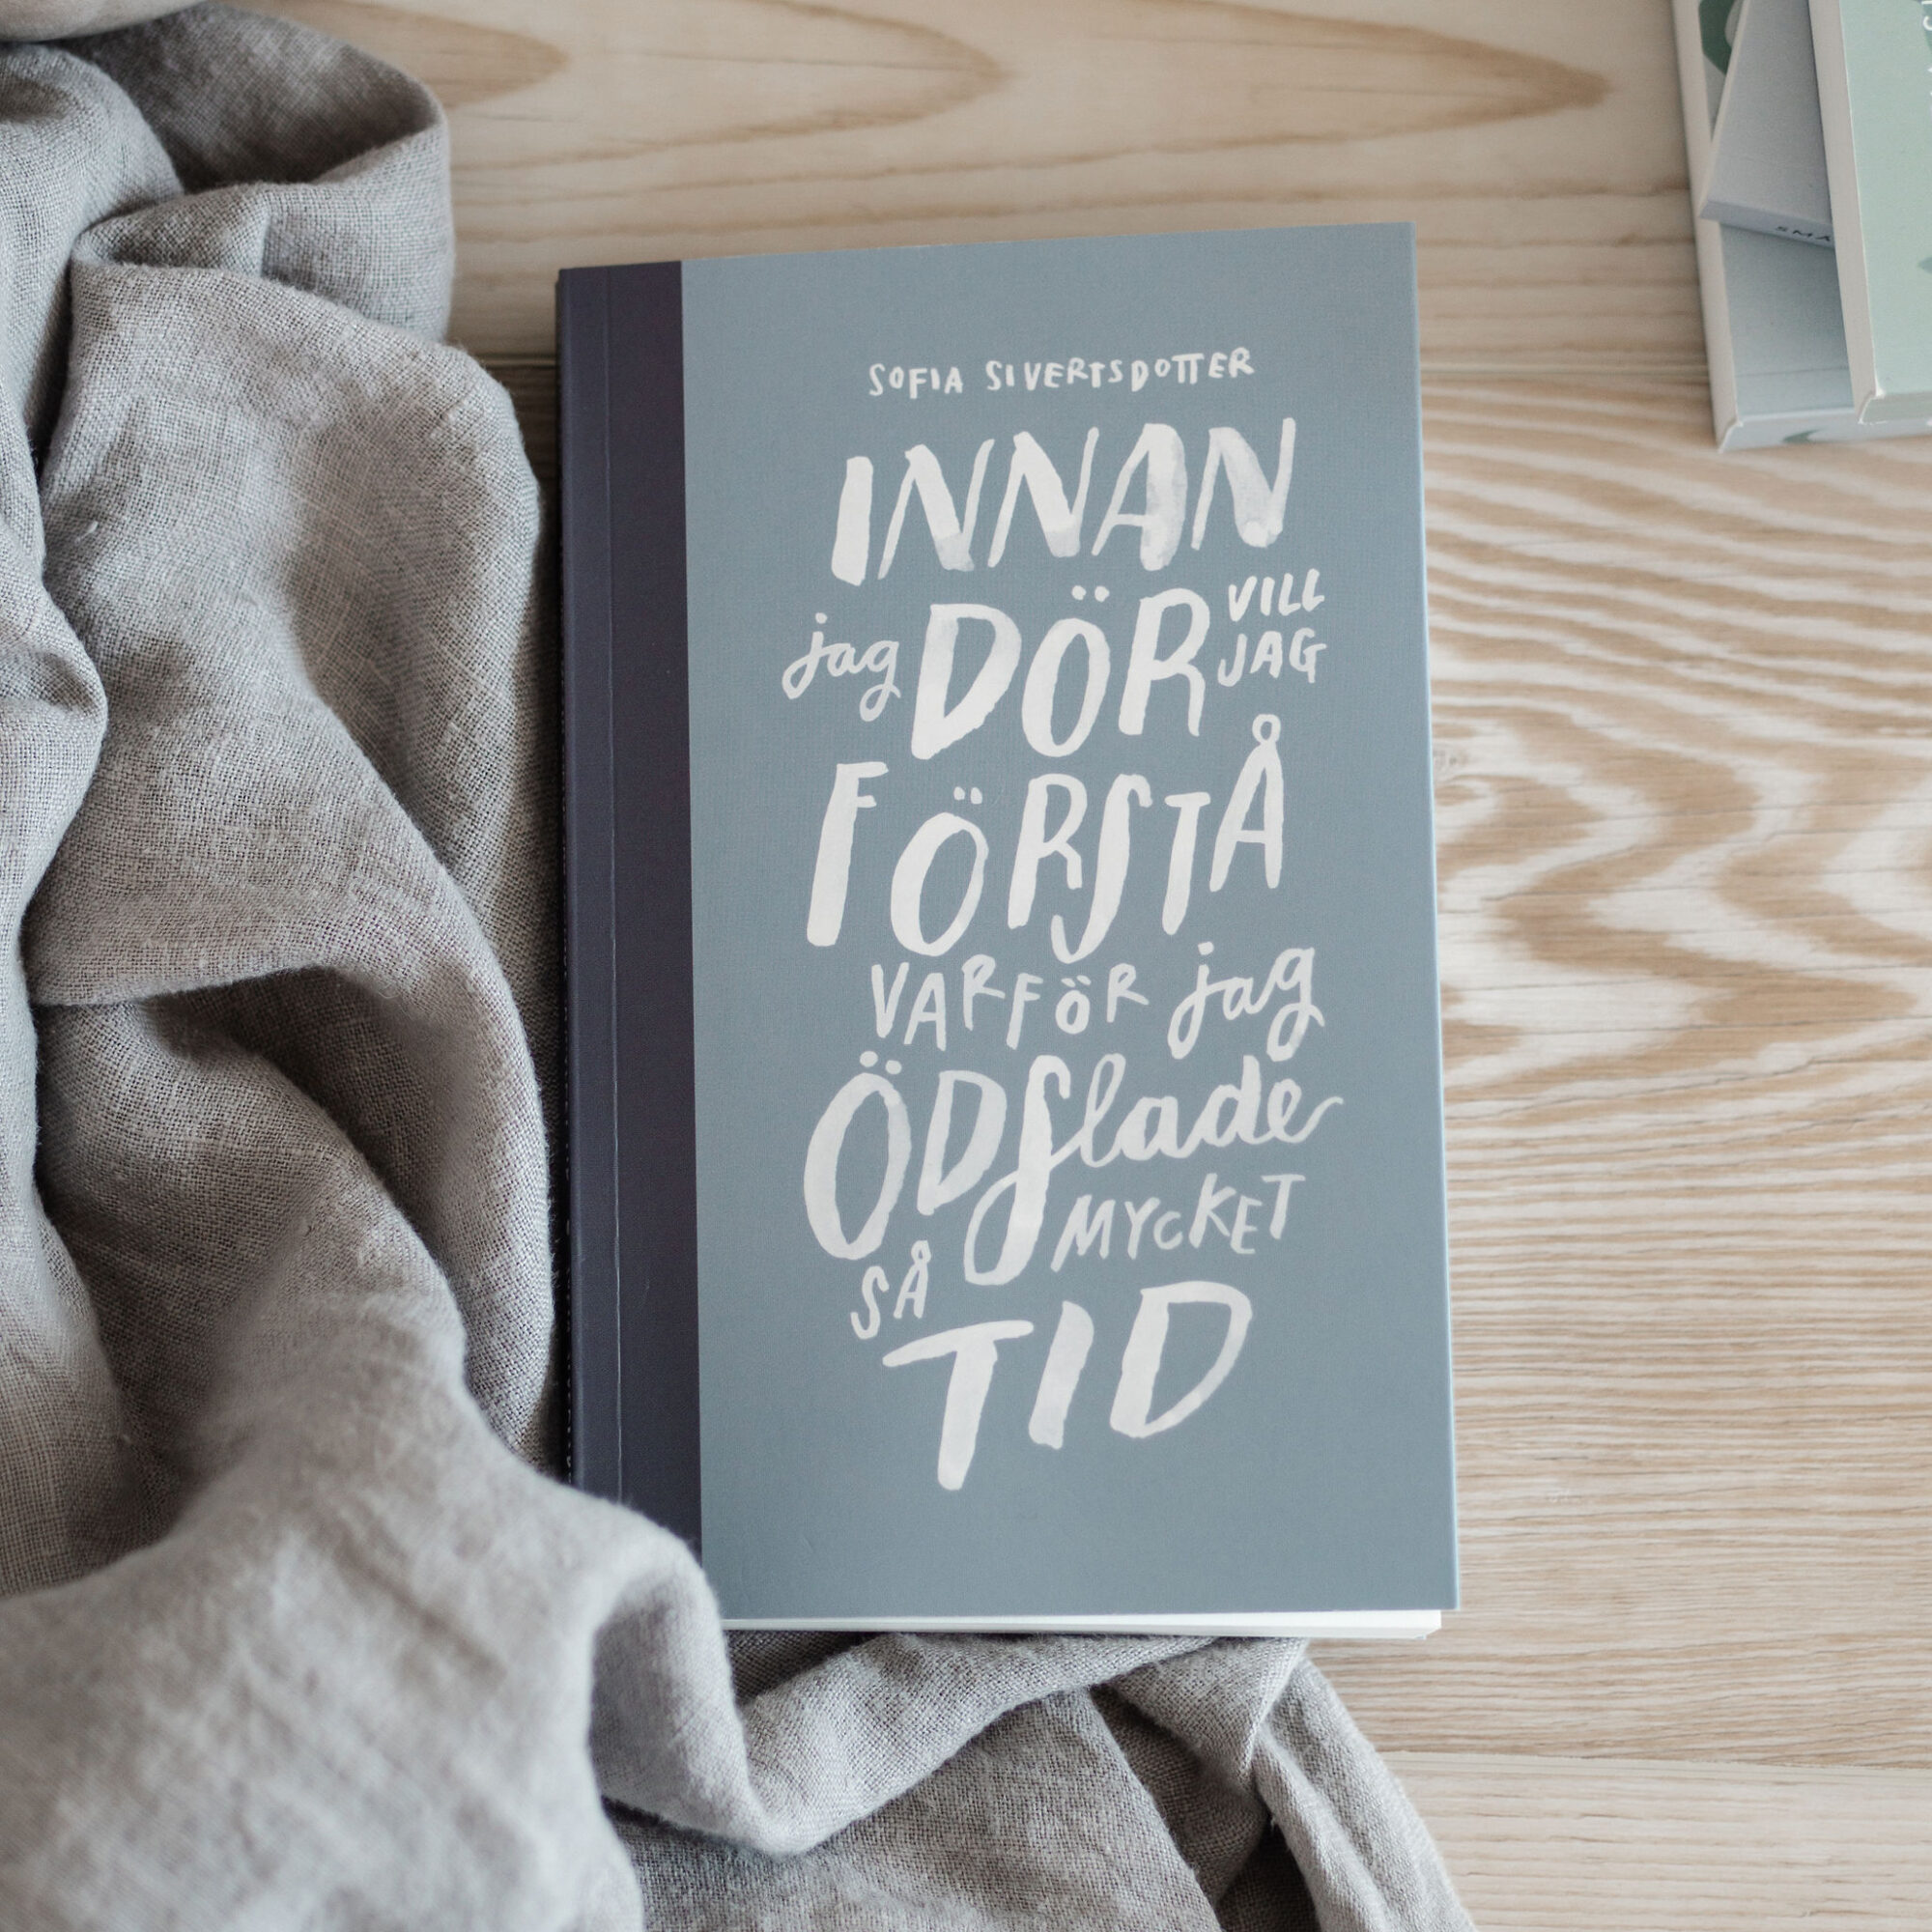 SOFIA SIVERTSDOTTER
INNAN
jag DÖR VILL
JAG
FÖRSTÅ
VARFÖR jag
ÖDSlade
SÅ MYCKET
TID